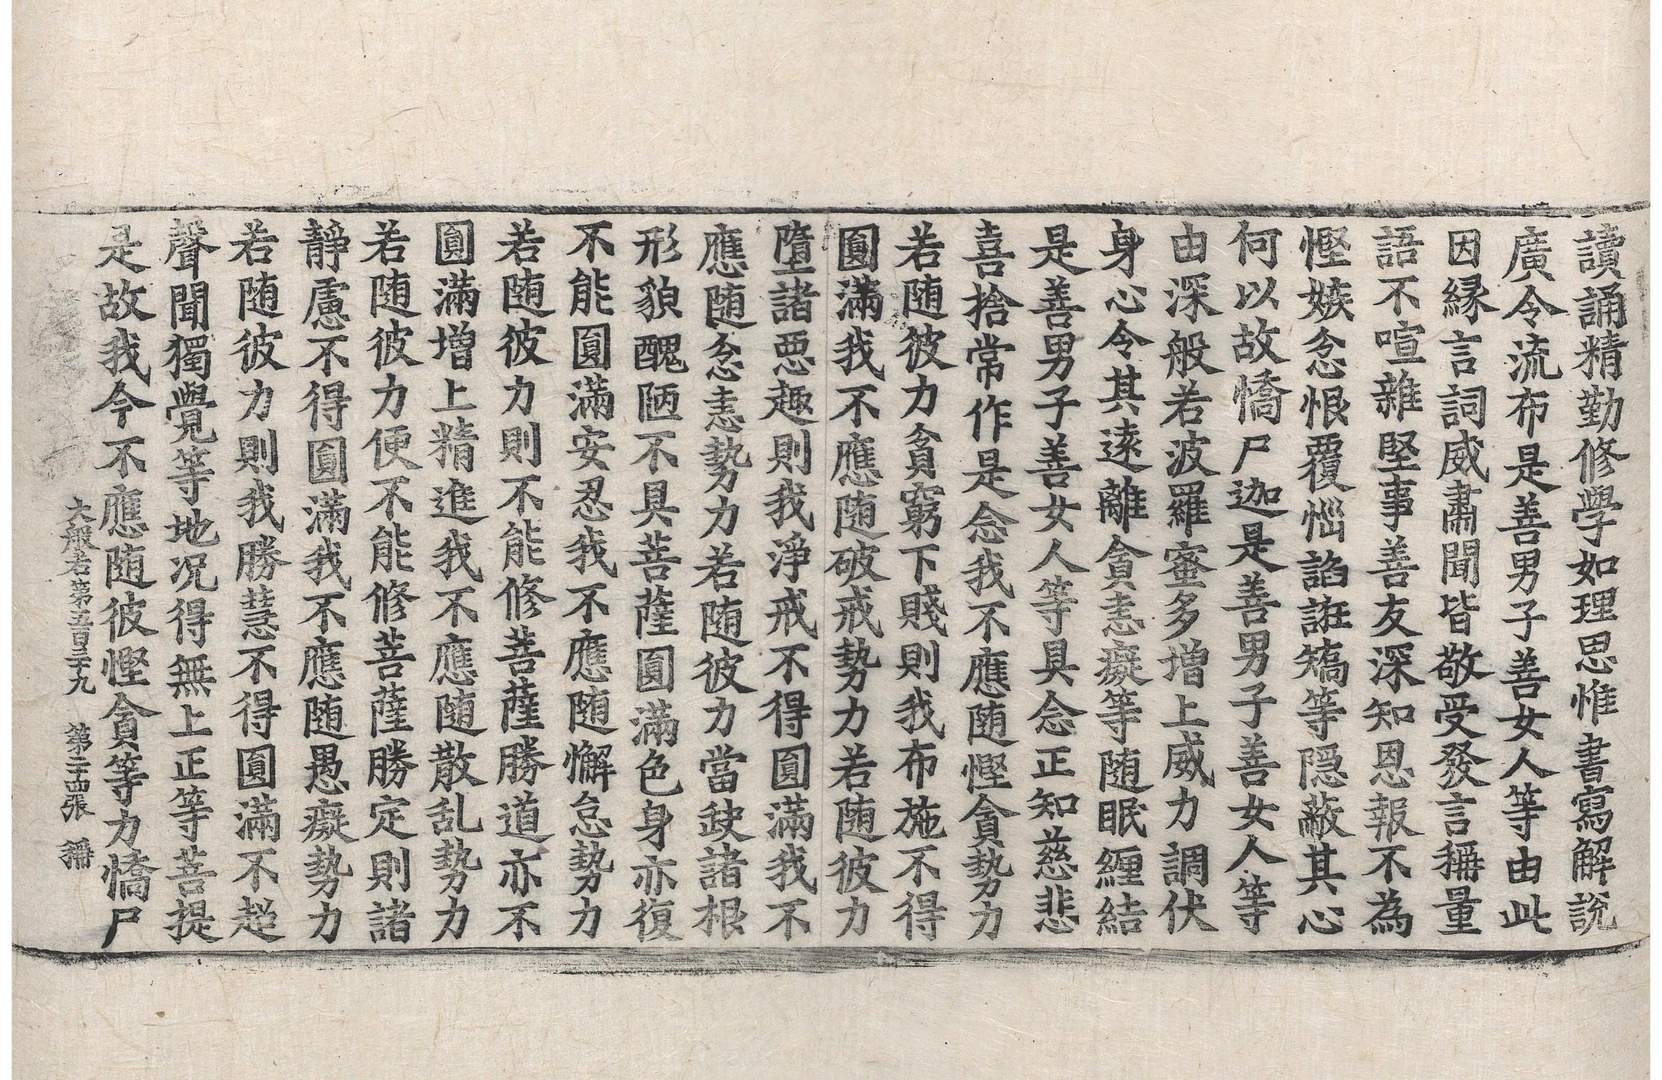 讀誦精勤修學如理思惟書寫解說
廣令流布是善男子善女人等由此
因縁言詞威肅聞皆敬受發言稱量
語不喧雜堅事善友深知恩報不為
慳嫉忿恨覆惱諂誑矯等隱蔽其心
何以故憍尸迦是善男子善女人等
由深般若波羅蜜多增上威力調伏
身心令其遠離貪恚癡等随眠纏結
是善男子善女人等具念正知慈悲
喜捨常作是念我不應随慳貪勢力
若随彼力貪窮下賤則我布施不得
圓滿我不應随破戒勢力若随彼力
墮諸惡趣則我淨戒不得圓滿我不
應随忿恚勢力若随彼力當缺諸根
形貌醜陋不具菩薩圓滿色身亦復
不能圓滿安忍我不應随懈怠勢力
若随彼力則不能修菩薩勝道亦不
圓滿增上精進我不應随散乱勢力
若随彼力便不能修菩薩勝定則諸
靜慮不得圓滿我不應随愚癡勢力
若随彼力則我勝慧不得圓滿不超
聲聞獨覺等地况得無上正等菩提
是故我今不應随彼慳貪等力憍尸
大般若第五百三十九 第二十四張 稱